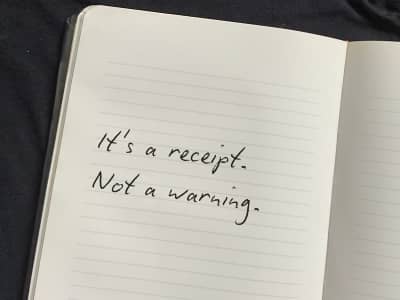 It's a receipt.
Not a warning.